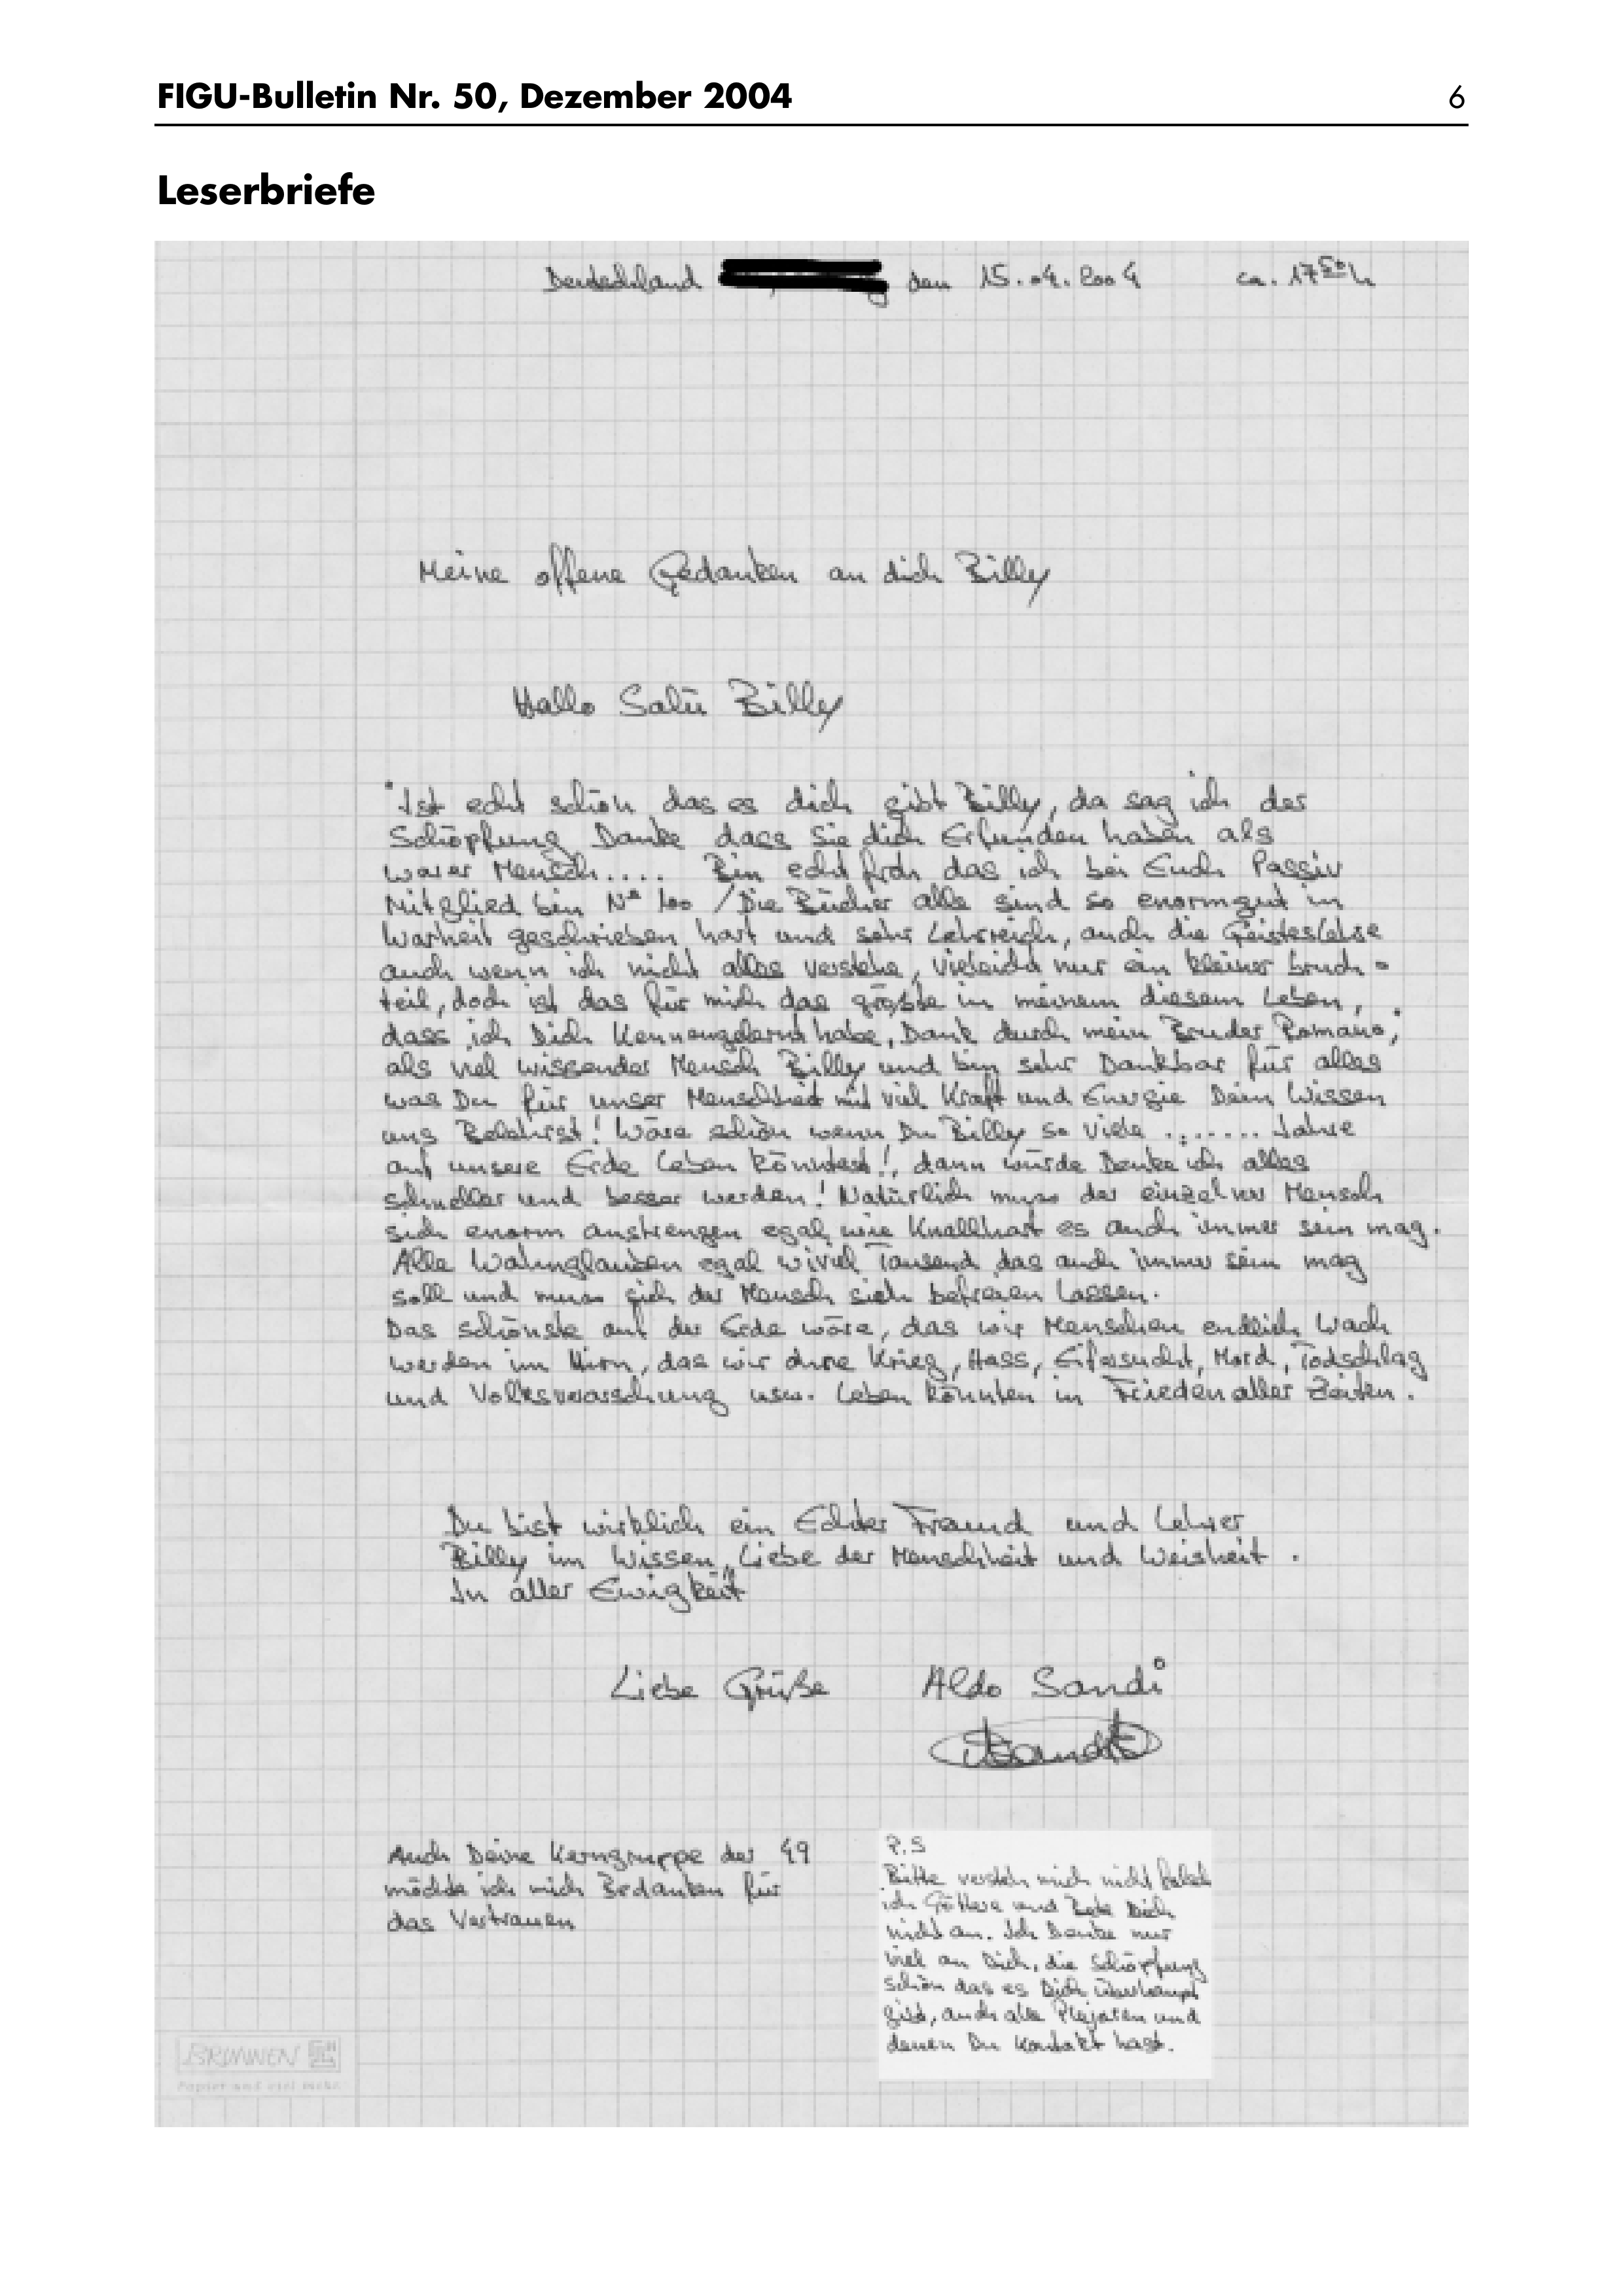 FIGU-Bulletin Nr. 50, Dezember 2004 6
Leserbriefe
Deutschland den 15.04.2004 ca. 17 50 h
Meine offene Gedanken an dich Billy
Hallo Salü Billy
Ist echt schön das es dich gibt Billy, da sag ich der
Schöpfung Danke dass Sie dich Erfunden haben als
warer Mensch.... Bin echt froh das ich bei Euch Passiv
Mitglied bin Nº 100 / Die Bücher alle sind so enormgut in
Warheit geschrieben hart und sehr Lehrreich, auch die Geisteslehre
auch wenn ich nicht alles verstehe, vieleicht nur ein kleiner bruch-
teil, doch ist das für mich das größte in meinem diesem Leben,
dass ich Dich Kennengelernt habe, Dank durch mein Bruder Romano,
als viel wissender Mensch Billy und bin sehr Dankbar für alles
was Du für unser Menschheit mit viel Kraft und Energie Dein Wissen
uns Belehrst! Wäre schön wenn Du Billy so viele ........ Jahre
auf unsere Erde Leben könntest!, dann würde Denke ich alles
schneller und besser werden! Natürlich muss der einzelner Mensch
sich enorm anstrengen egal wie Knallhart es auch immer sein mag.
Alle Wahnglauben egal wiviel Tausend das auch immer sein mag
soll und muss sich der Mensch sich befreien Lassen.
Das schönste auf der Erde wäre, das wir Menschen endlich Wach
werden im Hirn, das wir ohne Krieg, Hass, Eifersucht, Mord, Todschlag
und Volksverarschung usw. Leben könnten in Frieden aller Zeiten.
Du bist wirklich ein Echter Freund und Lehrer
Billy im Wissen, Liebe der Menschheit und Weisheit.
In aller Ewigkeit
Liebe Grüße Aldo Sandi
Auch Deine Kerngruppe der 49
möchte ich mich Bedanken für
das Vertrauen
P.S
Bitte versteh mich nicht falsch
ich Göttere und Bete Dich
nicht an. Ich Denke nur
viel an Dich, die Schöpfung
schön das es Dich überhaupt
gibt, auch alle Plejaren und
denen Du Kontakt hast.
BRUNNEN
Papier und viel mehr